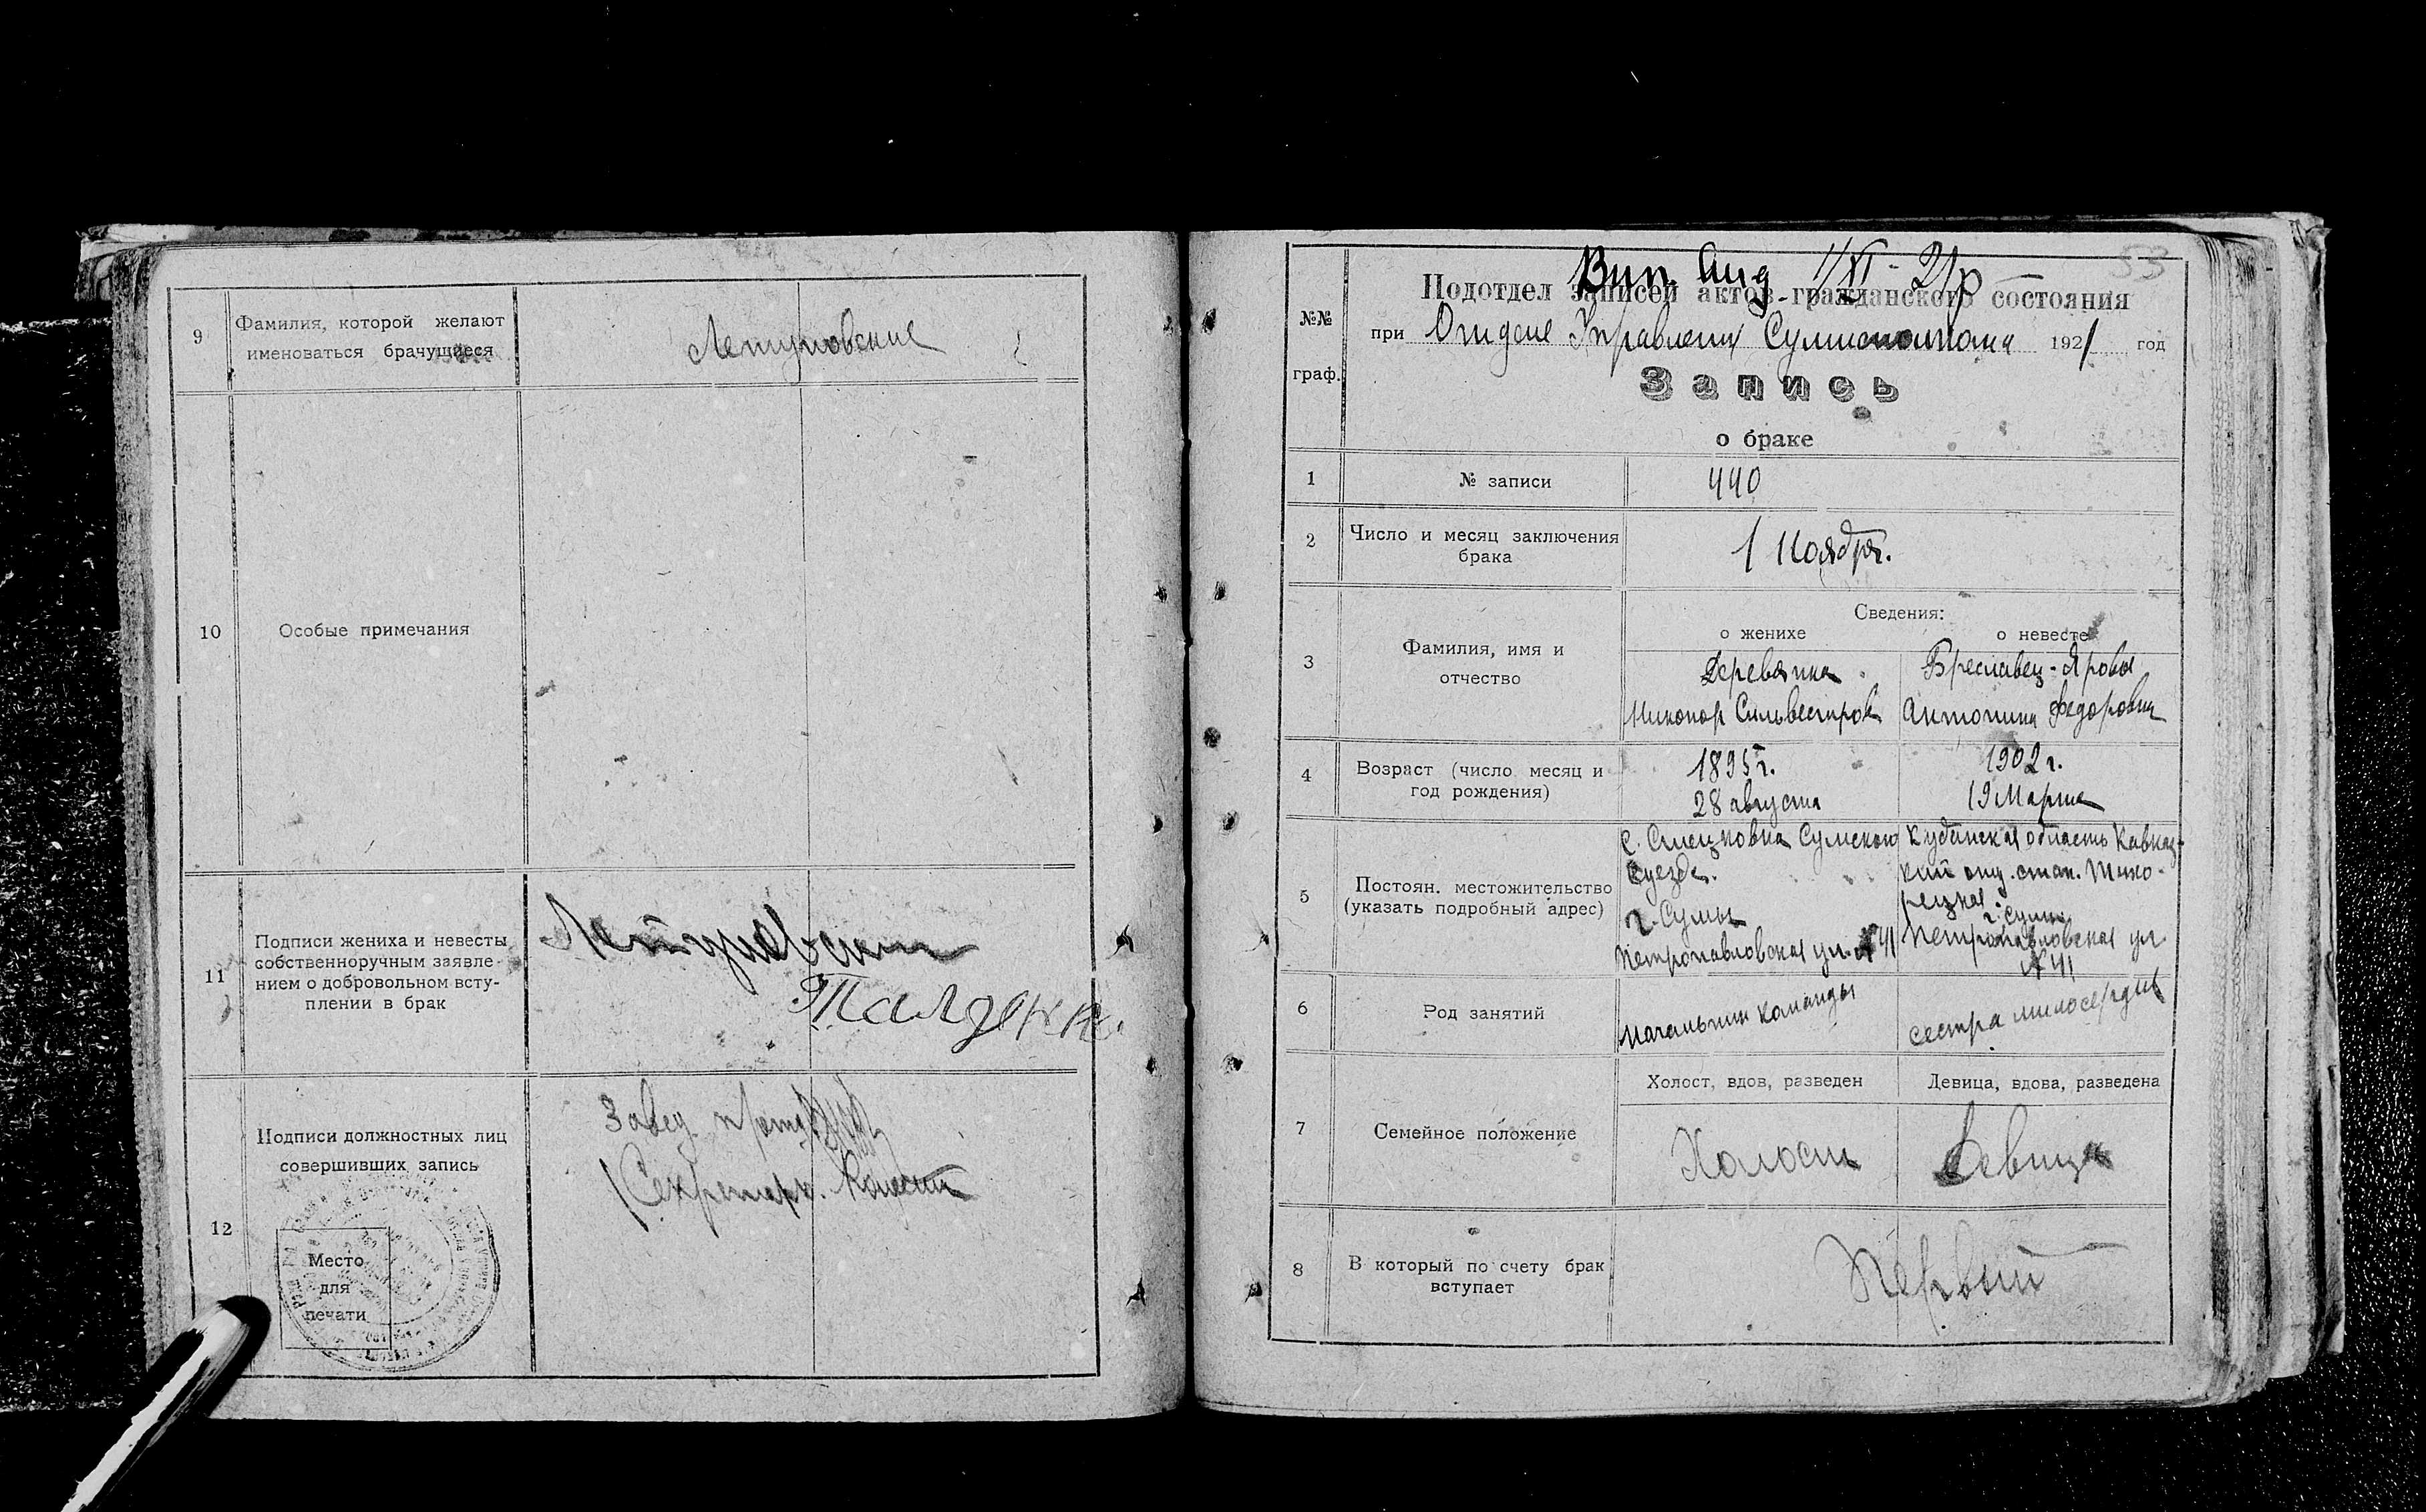 9
Фамилия, которой желают
именоваться брачущиеся
Летуновские
10
Особые примечания
11
Подписи жениха и невесты
собственноручным заявле-
нием о добровольном всту-
плении в брак
12
Подписи должностных лиц
совершивших запись
Завед.
Секретарь.
Место
для
печати
53
Вип. Аид 1/XI-21р
№№
граф.
Подотдел записей актов гражданского состояния
при Отделе Управления 1921 год
Запись
о браке
1
№ записи
440
2
Число и месяц заключения
брака
1 Ноября.
3
Фамилия, имя и
отчество
Сведения:
о женихе
о невесте
Деревянка
Никонор Сильвестров
Бреславец-Яровая
Антонина Федоровна
4
Возраст (число месяц и
год рождения)
1895 г.
28 августа
1902 г.
19 Марта
5
Постоян. местожительство
(указать подробный адрес)
с. Сумского
уезда.
г. Сумы
Петропавловская ул. № 41
Кубанская область Кавказ-
кий отд. стан. Тихо-
рецкая.
г. Сумы
Петропавловская ул.
№ 41
6
Род занятий
Начальник команды
сестра милосердия
7
Семейное положение
Холост, вдов, разведен
Девица, вдова, разведена
Холост
Девица
8
В который по счету брак
вступает
Первый